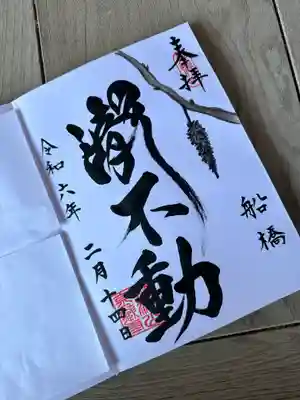 奉拝
船橋
瀧不動
令和六年
二月十四日